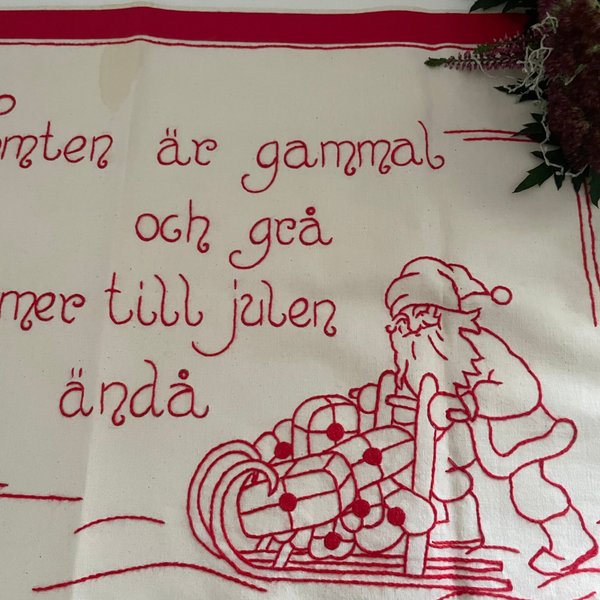 omten är gammal
och grå
mer till julen
ändå